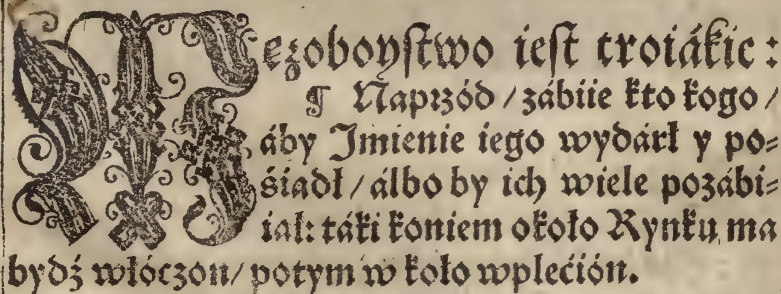 Mężoboystwo iest troiákie:
¶ Naprzód / zábiie kto kogo /
áby Jmienie iego wydárł y po⸗
śiadł / álbo by ich wiele pozábi⸗
iał: táki koniem około Rynku ma
bydź włóczon / potym w koło wplećión.